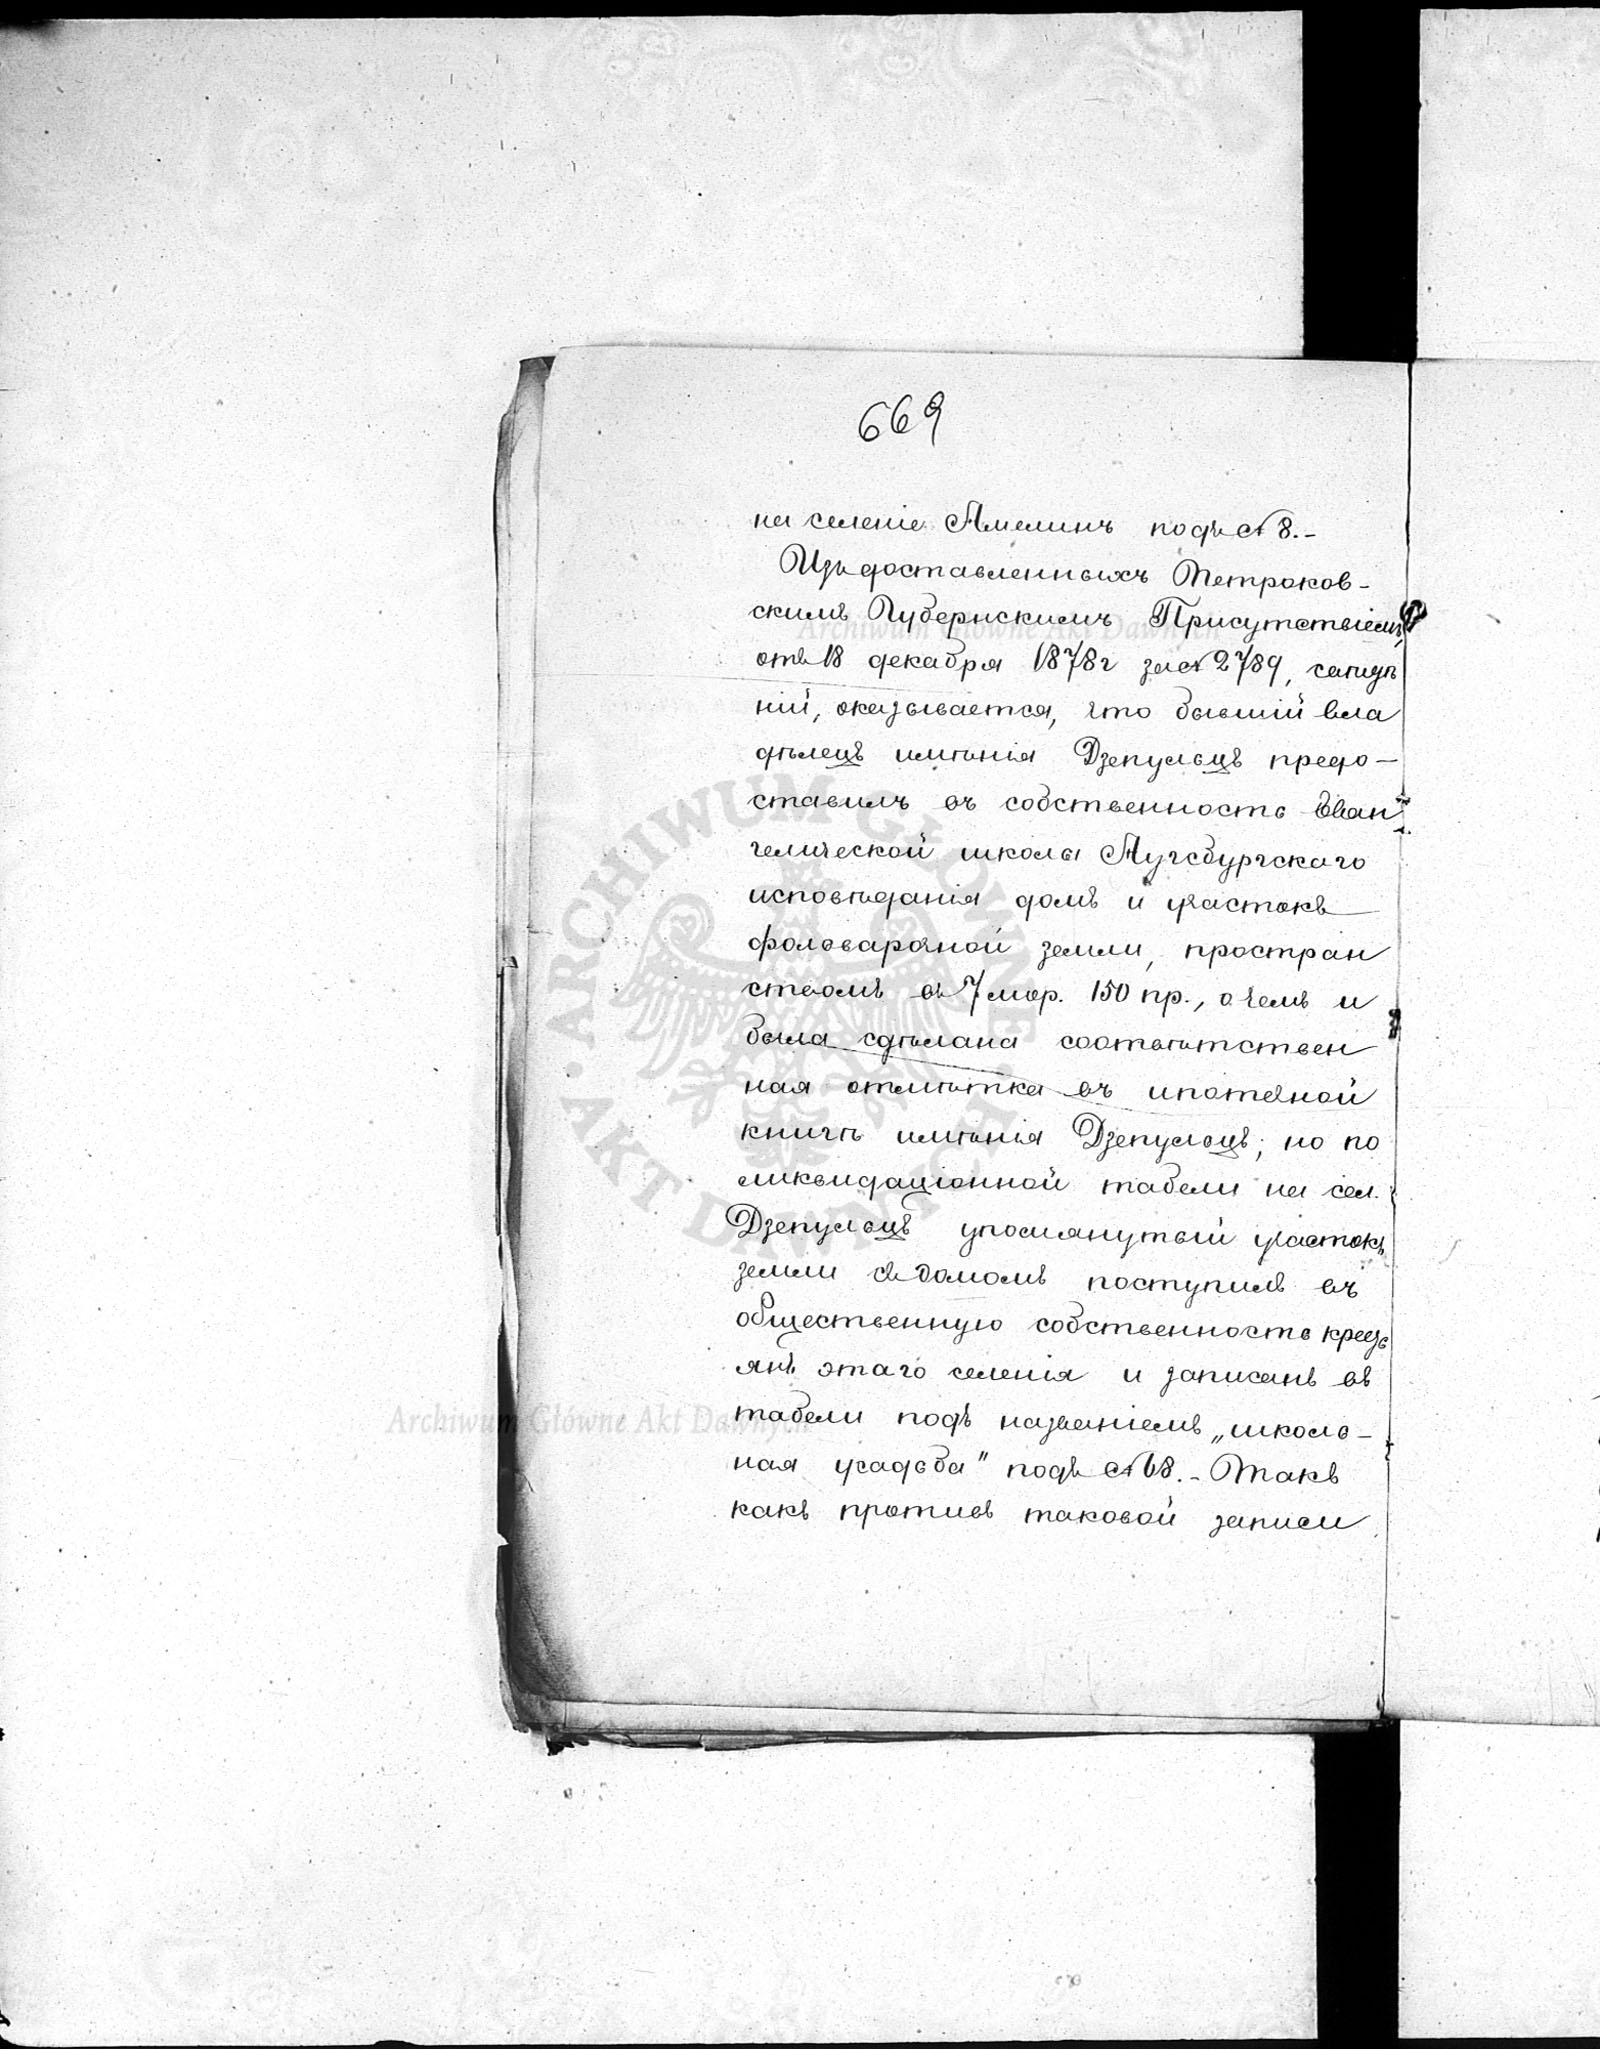 669
на селеніе Амелинъ подъ № 8.-
Изъ доставленныхъ Петроков-
скимъ Губернскимъ Присутствіемъ,
отъ 18 декабря 1878 г за № 2789,
ній, оказывается, что бывшій вла
дѣлецъ имѣнія Дзепульцъ предо-
ставилъ въ собственность Еван
гелической школы Аугсбургскаго
исповѣданія домъ и участокъ
фольварочной земли, простран
ствомъ въ 7 мор. 150 пр., о чемъ и
была сдѣлана соотвѣтствен
ная отмѣтка въ ипотечной
книгѣ имѣнія Дзепульцъ; но по
ликвидаціонной табели на сел.
Дзепульцъ упомянутый участокъ
земли съ домомъ поступилъ въ
общественную собственность кресть
янъ этаго селенія и записанъ въ
табели подъ названіемъ „школь-
ная усадьба" подъ № 68.- Такъ
какъ противъ таковой записи
ARCHIWUM GŁÓWNE AKT DAWNYCH
Archiwum Główne Akt Dawnych
Archiwum Główne Akt Dawnych